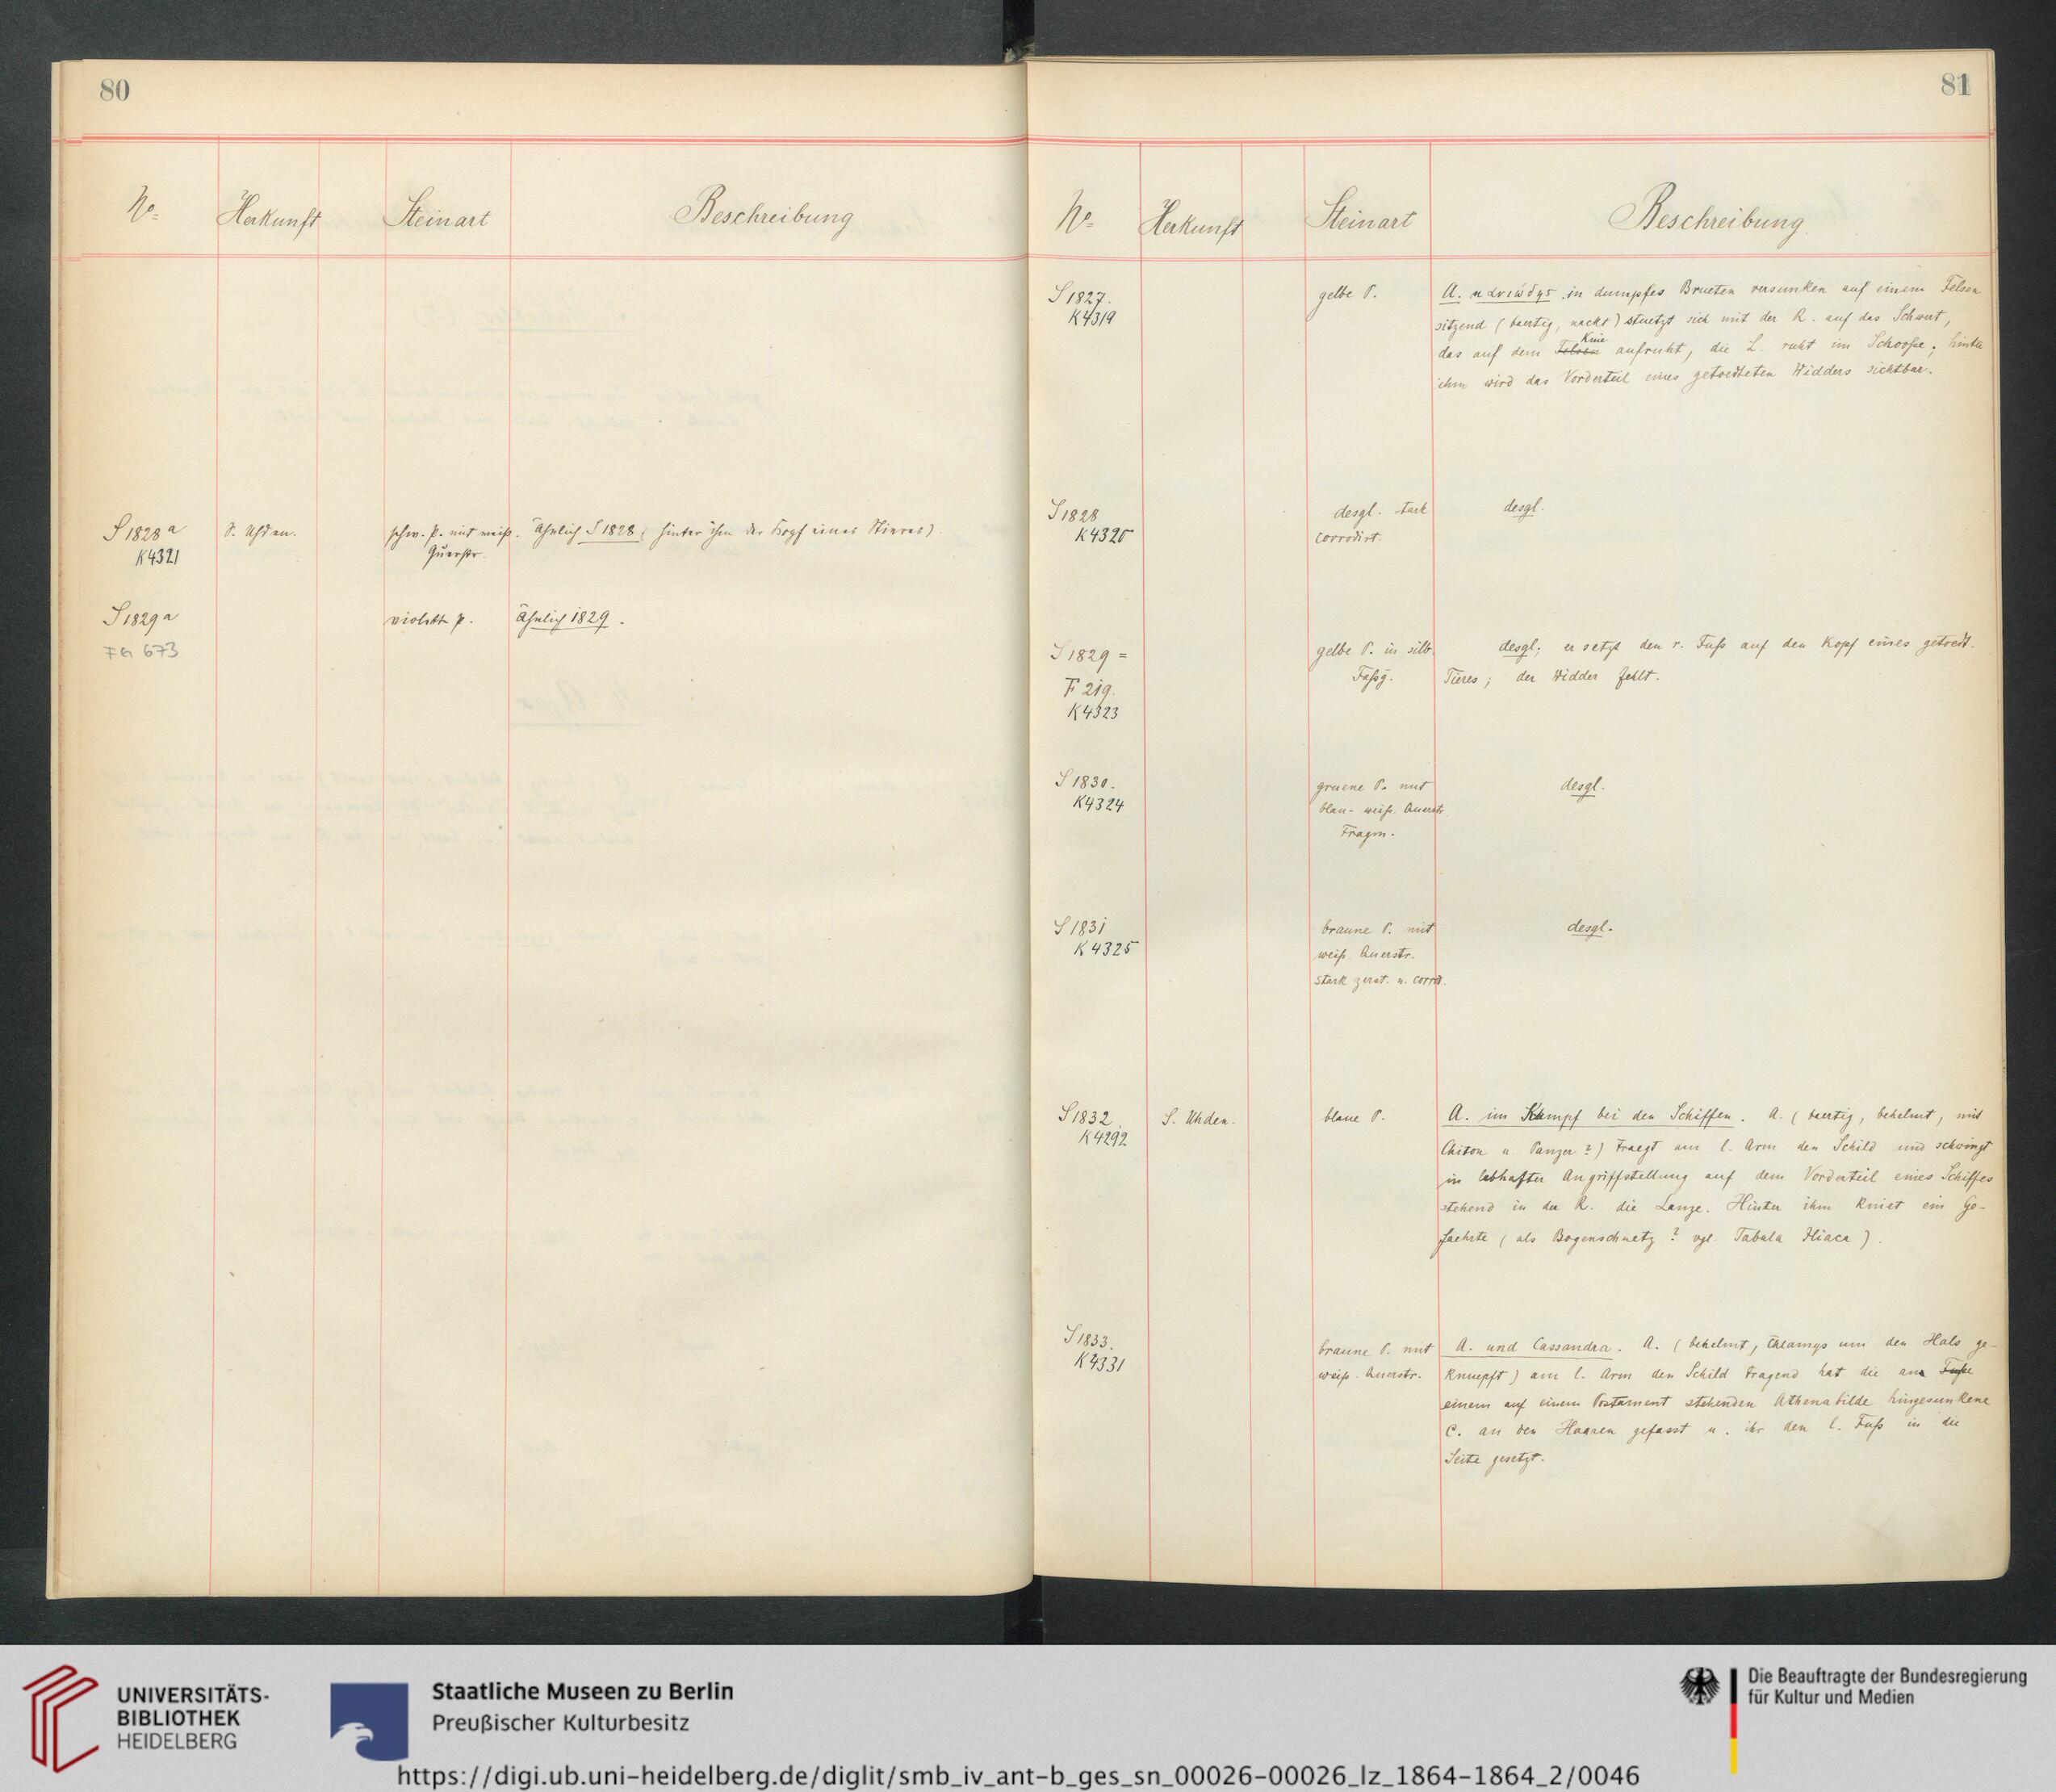 80
No. Herkunft Steinart Beschreibung
S 1828 a S. Uhden. schw. P. mit weiß. Ähnlich S 1828 (hinter ihm der Kopf eines Stieres).
K4321 Querstr.
S 1829 a violette P. Ähnlich 1829.
FG 673
81
No. Herkunft Steinart Beschreibung.
S 1827. gelbe P. A. in dumpfes Brueten versunken auf einem Felsen
K4319 sitzend (baertig, nackt) stuetzt sich mit der R. auf das Schwert,
Knie
das auf dem Felsen aufruht, die L. ruht im Schooße; hinter
ihm wird das Vorderteil eines getoedteten Widders sichtbar.
S 1828 desgl. stark desgl.
K4320 corrodirt.
S 1829 = gelbe P. in silb. desgl; er setzt den r. Fuß auf den Kopf eines getoedt.
F 219. Faßg. Tieres; der Widder fehlt.
K4323
S 1830. gruene P. mit desgl.
K4324 blau-weiß. Querstr.
Fragm.
S 1831 braune P. mit desgl.
K4325 weiß. Querstr.
stark zerst. u. corrod.
S 1832. S. Uhden. blaue P. A. im Kampf bei den Schiffen. A. (baertig, behelmt, mit
K4292 Chiton u. Panzer?) traegt am l. Arm den Schild und schwingt
in lebhafter Angriffstellung auf dem Vorderteil eines Schiffes
stehend in der R. die Lanze. Hinter ihm kniet ein Ge-
faehrte (als Bogenschuetz? vgl. Tabula Iliaca).
S 1833. braune P. mit A. und Cassandra. A. (behelmt, Chlamys um den Hals ge-
K4331 weiß. Querstr. knuepft) am l. Arm den Schild tragend hat die an Fuße
einem auf einem Postament stehenden Athenabilde hingesunkene
C. an den Haaren gefasst u. ihr den l. Fuß in die
Seite gesetzt.
UNIVERSITÄTS-
BIBLIOTHEK
HEIDELBERG
Staatliche Museen zu Berlin
Preußischer Kulturbesitz
Die Beauftragte der Bundesregierung
für Kultur und Medien
https://digi.ub.uni-heidelberg.de/diglit/smb_iv_ant-b_ges_sn_00026-00026_lz_1864-1864_2/0046